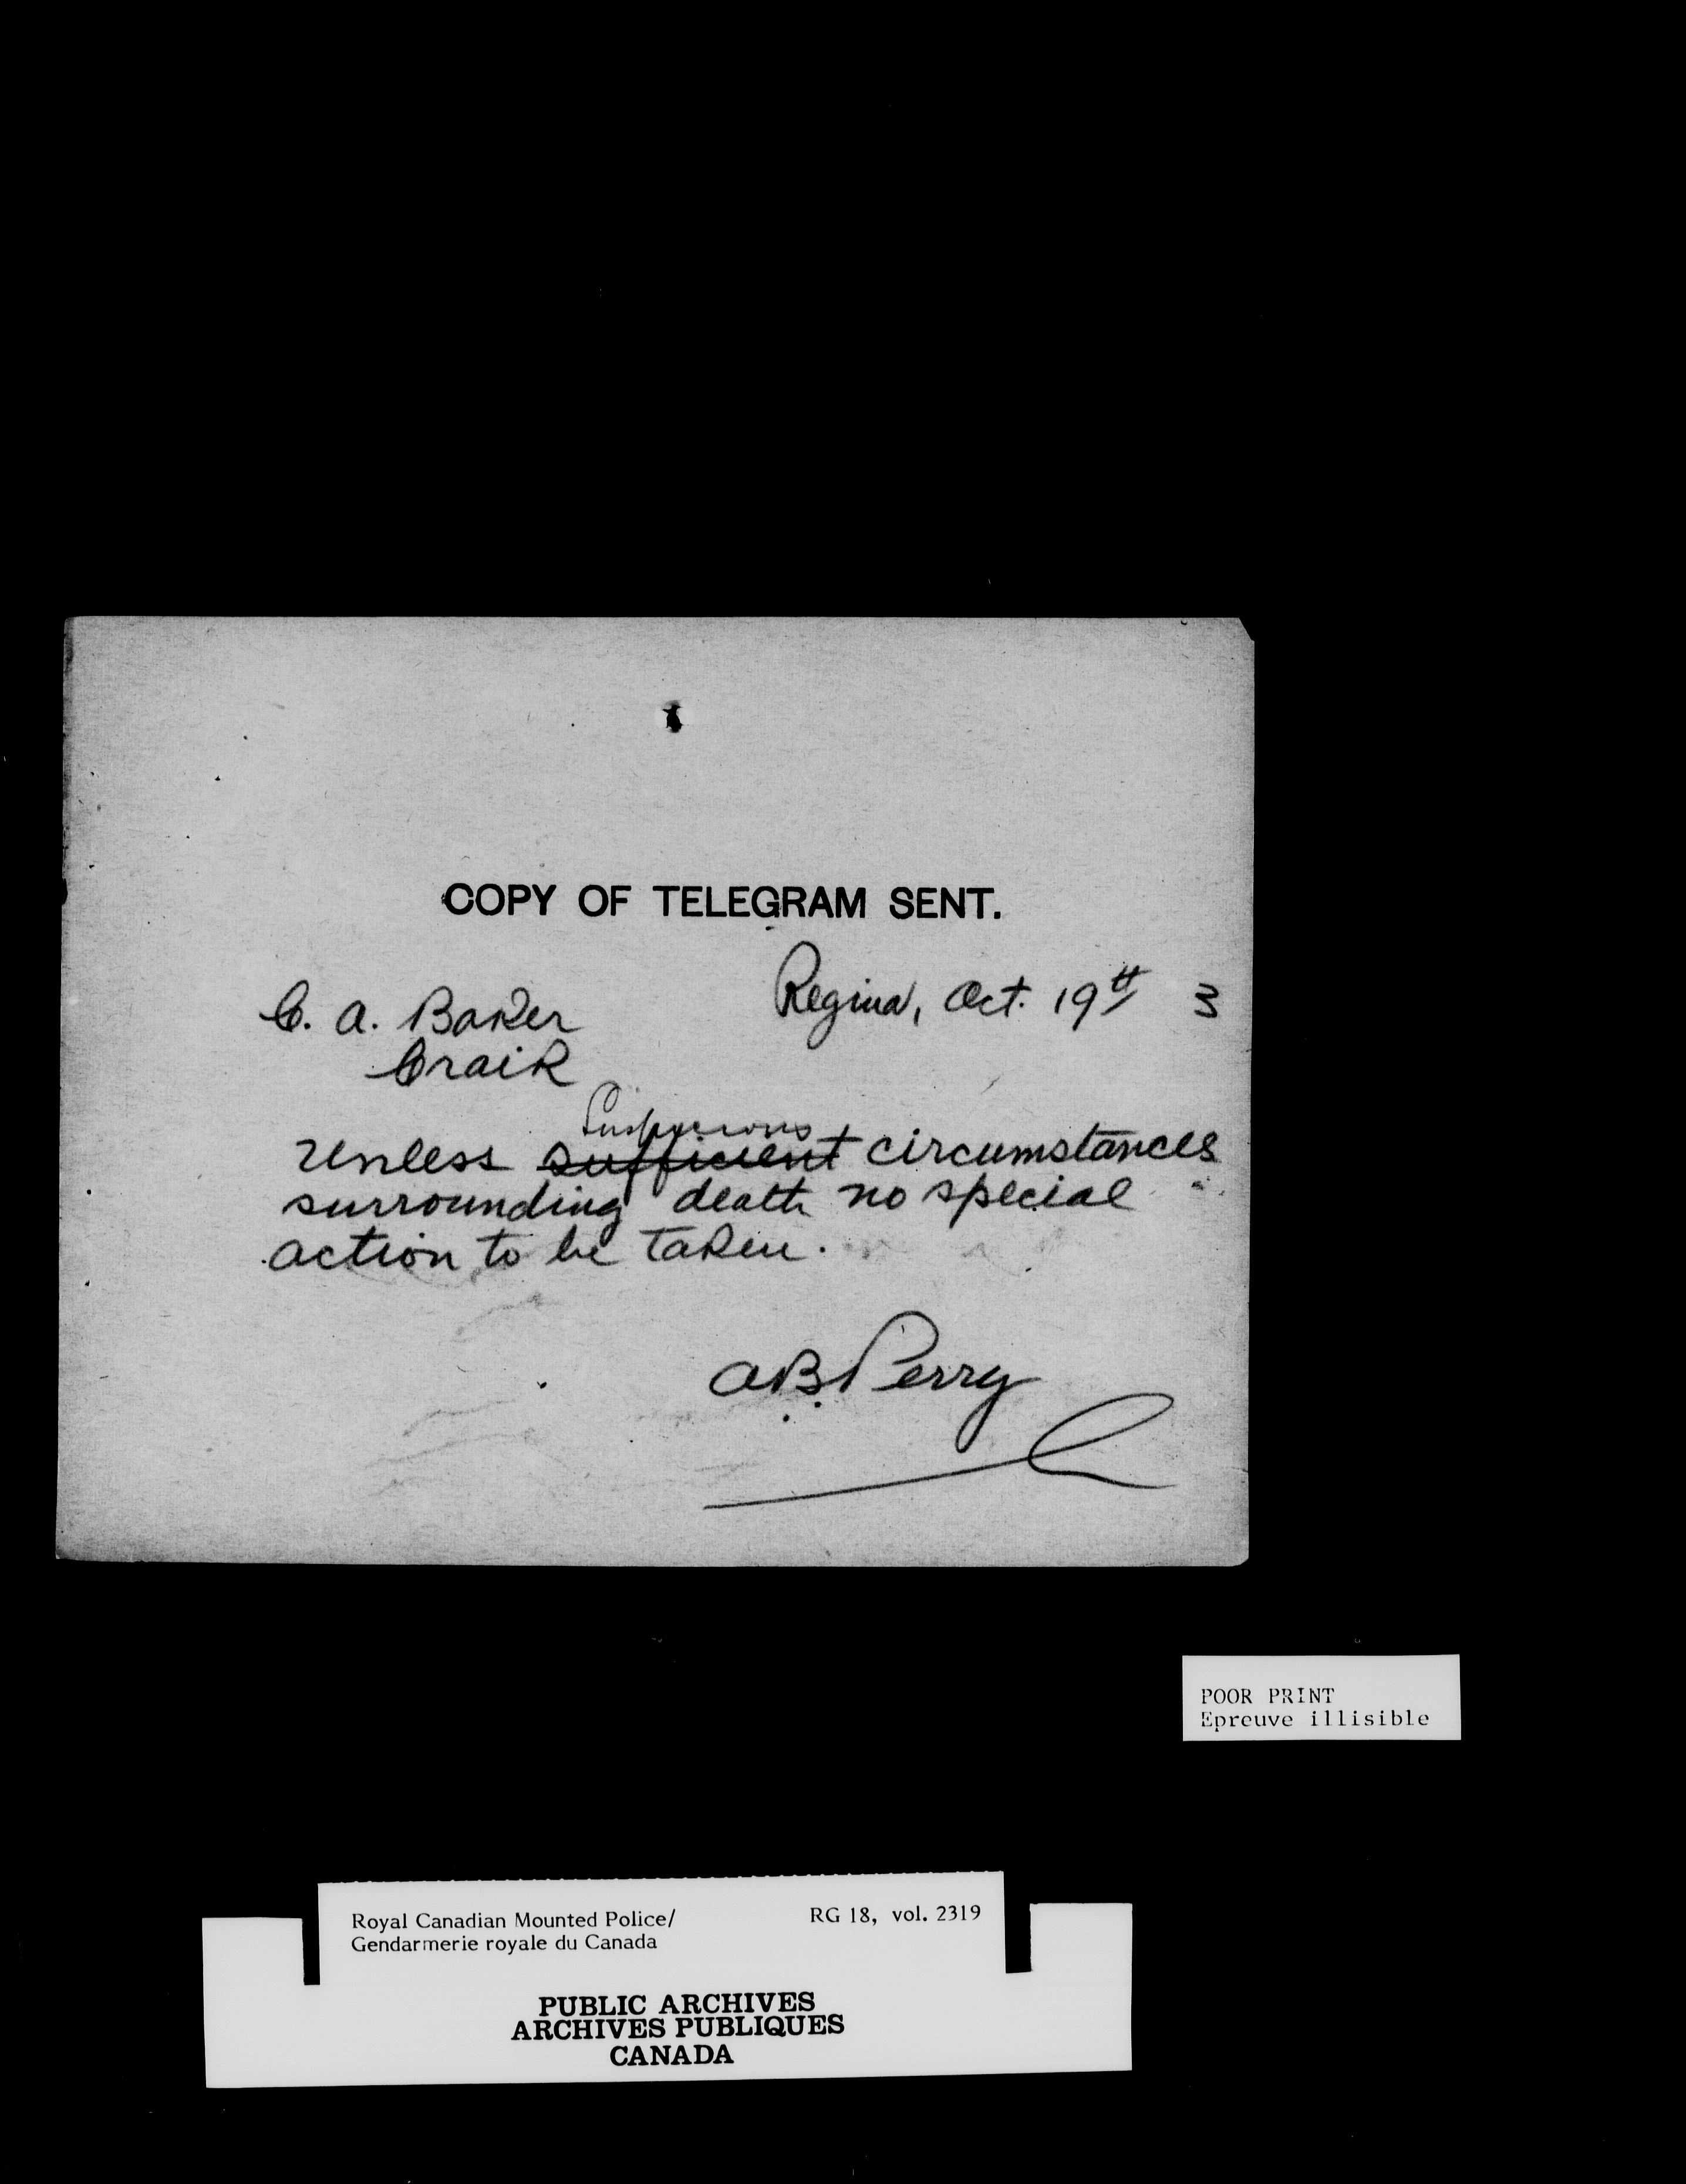 COPY OF TELEGRAM SENT.
Regina, Oct. 19th 3
C. A. Baker
Craik
Suspicious
Unless sufficient circumstances
surrounding death no special
action to be taken.
AB Perry
POOR PRINT
Epreuve illisible
Royal Canadian Mounted Police/ RG 18, vol. 2319
Gendarmerie royale du Canada
PUBLIC ARCHIVES
ARCHIVES PUBLIQUES
CANADA